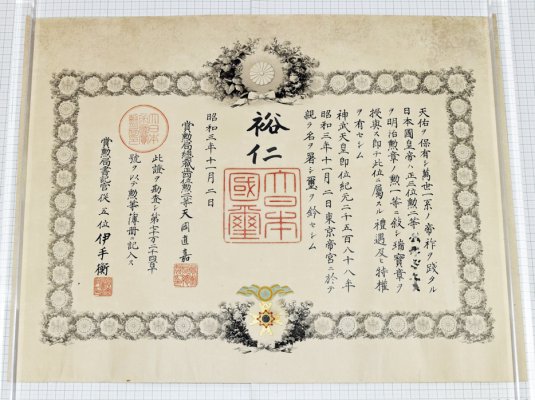 天佑ヲ保有シ萬世一系ノ帝祚ヲ踐タル
日本國皇帝ハ正三位勲二等
ヲ明治勲章ノ勲一等ニ敍シ瑞寳章ヲ
授與ス即チ此位ニ屬スル禮遇及ヒ特權
ヲ有セシム
神武天皇即位紀元二千五百八十八年
昭和三年十一月二日東京帝宮ニ於テ
親ラ名ヲ署シ璽ヲ鈐セシム
裕仁
大日本國璽
昭和三年十一月二日
賞勲局總裁正四位勲二等天岡直嘉
此證ヲ勘査シ第
號ヲ以テ勲等簿册ニ記入ス
賞勲局書記官從五位伊手衡